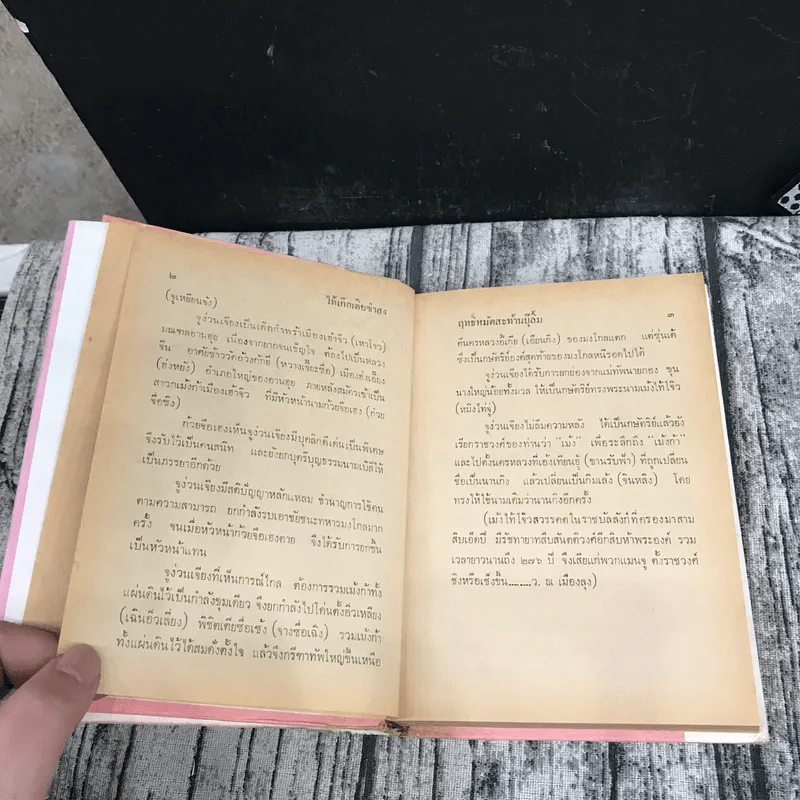 ๒
ไท้เก๊กเตียซำฮง
(จูเหยียนจัง)
จูง่วนเจียงเป็นเด็กกำพร้าเมืองเฮ้าจิ๋ว (เหาโจว)
มณฑลอานฮุย เนื่องจากยากจนเข็ญใจ ต้องไปเป็นหลวง
จีน อาศัยข้าววัดอ้วงกักยี่ (หวางเจี๋ยะซื่อ) เมืองฮ่งเอี๊ยง
(ฮ่งหยัง) อำเภอใหญ่ของอานฮุย ภายหลังสมัครเข้าเป็น
สาวกเม้งก้าเมืองเฮ้าจิ๋ว ที่มีหัวหน้านามก๊วยจื้อเฮง (ก๋วย
จื่อซิง)
ก๊วยจื้อเฮงเห็นจูง่วนเจียงมีบุคลิกดีเด่นเป็นพิเศษ
จึงรับไว้เป็นคนสนิท และยังยกบุตรีบุญธรรมนามเบ๊ซีให้
เป็นภรรยาอีกด้วย
จูง่วนเจียงมีสติปัญญาหลักแหลม ชำนาญการใช้คน
ตามความสามารถ ยกกำลังรบเอาชัยชนะทหารมงโกลมาก
ครั้ง จนเมื่อหัวหน้าก๊วยจื้อเฮงตาย จึงได้รับการยกขึ้น
เป็นหัวหน้าแทน
จูง่วนเจียงที่เห็นการณ์ไกล ต้องการรวมเม้งก้าทั้ง
แผ่นดินไว้เป็นกำลังขุมเดียว จึงยกกำลังไปโค่นตั้งอิ้วเหลียง
(เฉินอิ่วเลี่ยง) พิชิตเตียซื่อเซ้ง (จางซื่อเฉิง) รวมเม้งก้า
ทั้งแผ่นดินไว้ได้สมดั่งตั้งใจ แล้วจึงกรีฑาทัพใหญ่ขึ้นเหนือ
ฤทธิ์หมัดสะท้านบู๊ลิ้ม
๓
ตีนครหลวงอี้เกีย (เอียนกิง) ของมงโกลแตก แต่ซุ่นเต้
ซึ่งเป็นกษัตริย์องค์สุดท้ายของมงโกลหนีรอดไปได้
จูง่วนเจียงได้รับการยกย่องจากแม่ทัพนายกอง ขุน
นางใหญ่น้อยทั้งมวล ให้เป็นกษัตริย์ทรงพระนามเม้งไท้โจ๊ว
(หมิงไท่จู่)
จูง่วนเจียงไม่ลืมความหลัง ได้เป็นกษัตริย์แล้วยัง
เรียกราชวงศ์ของท่านว่า "เม้ง" เพื่อระลึกถึง "เม้งก้า"
และไปตั้งนครหลวงที่เอ้งเทียนฮู้ (ซานรับฟ้า) ที่ถูกเปลี่ยน
ชื่อเป็นนานกิง แล้วเปลี่ยนเป็นกิมเล้ง (จินหลิง) โดย
ทรงให้ใช้นามเดิมว่านานกิงอีกครั้ง
(เม้งไท้โจ๊วสวรรคตในราชบัลลังก์ที่ครองมาสาม
สิบเอ็ดปี มีรัชทายาทสืบสันตติวงศ์อีกสิบห้าพระองค์ รวม
เวลายาวนานถึง ๒๗๖ ปี จึงเสียแก่พวกแมนจู ตั้งราชวงศ์
ชิงหรือเช็งขึ้น.........ว. ณ เมืองลุง)